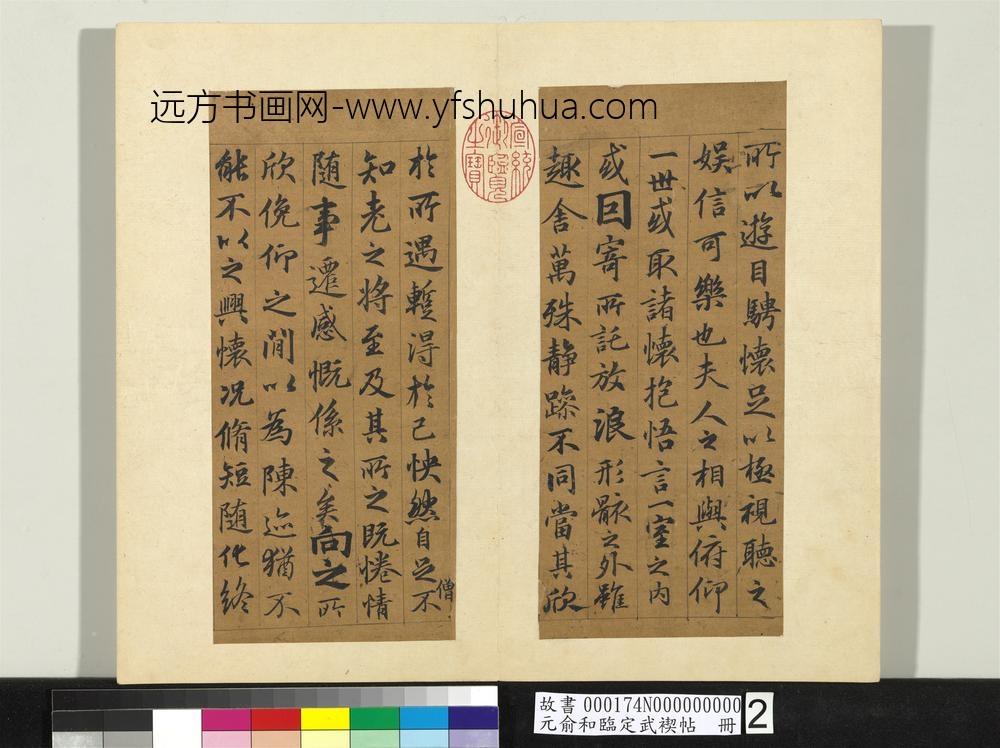 远方书画网-www.yfshuhua.com
所以遊目騁懷足以極視聽之
娱信可樂也夫人之相與俯仰
一世或取諸懷抱悟言一室之内
或因寄所託放浪形骸之外雖
趣舍萬殊静躁不同當其欣
宣統御覽之寶
於所遇蹔得於己怏然自足不
僧
知老之將至及其所之既惓情
随事遷感慨係之矣向之所
欣俛仰之閒以為陳迹猶不
能不以之興懷况脩短随化終
故書 000174N000000000
元俞和臨定武禊帖 冊
2